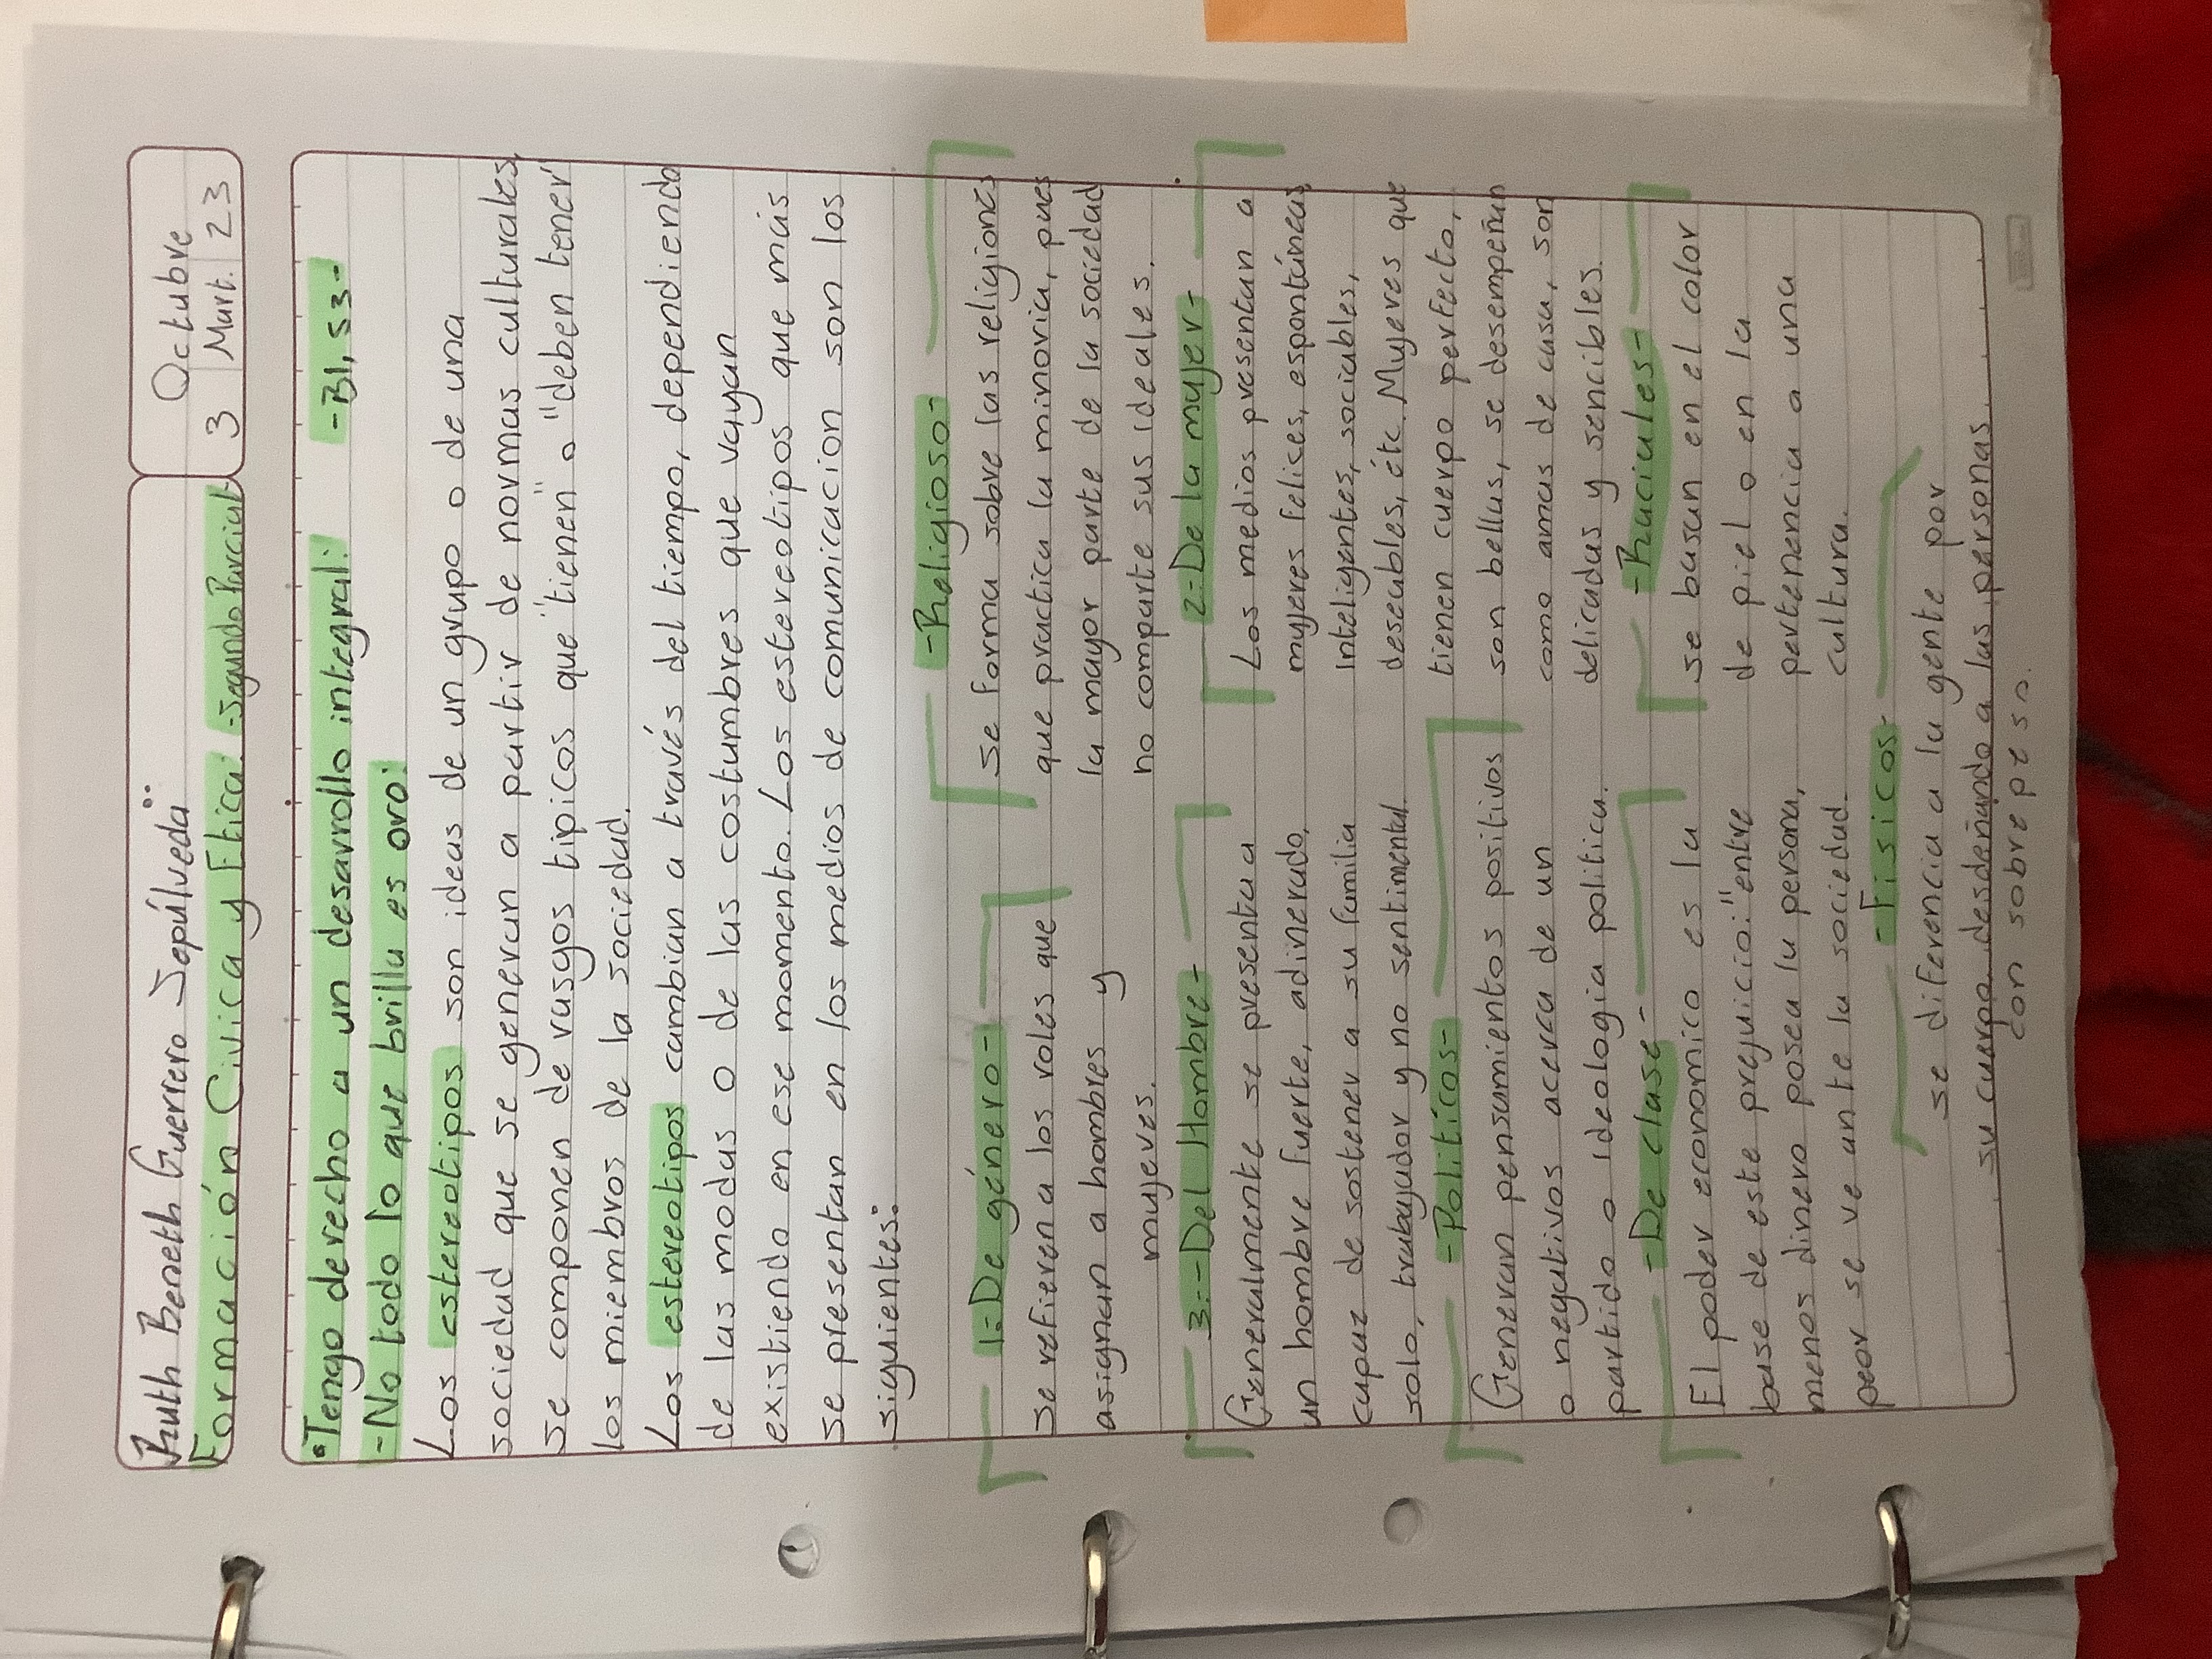 Ruth Beneth Guerrero Sepúlveda
Octubre
Formación Civica y Etica. -Segundo Parcial
3 Mart. 23
"Tengo derecho a un desarrollo integral: -B1, S3-
-No todo lo que brilla es oro:
Los estereotipos son ideas de un grupo o de una
sociedad que se generan a partir de normas culturales,
se componen de rasgos tipicos que "tienen" o "deben tener"
los miembros de la sociedad.
Los estereotipos cambian a través del tiempo, dependiendo
de las modas o de las costumbres que vayan
existiendo en ese momento. Los estereotipos que más
se presentan en los medios de comunicacion son los
siguientes:
1.-De género-
se refieren a los roles que
asignan a hombres y
mujeres.
-Religioso-
se forma sobre las religiones
que practica la minoria, pues
la mayor parte de la sociedad
no comparte sus ideales.
3.-Del Hombre-
Generalmente se presenta a
un hombre fuerte, adinerado,
capaz de sostener a su familia
solo, trabajador y no sentimental.
2.-De la mujer-
Los medios presentan a
mujeres felices, espontáneas,
inteligentes, sociables,
deseables, étc. Mujeres que
tienen cuerpo perfecto,
son bellas, se desempeñan
como amas de casa, son
delicadas y sencibles.
-Politícos-
Generan pensamientos positivos
o negativos acerca de un
partido o ideologia politica.
-Raciales-
se basan en el color
de piel o en la
pertenencia a una
cultura.
-De clase-
El poder economico es la
base de este prejuicio: "entre
menos dinero posea la persona,
peor se ve ante la sociedad.
-Fisicos-
se diferencia a la gente por
su cuerpo, desdeñando a las personas
con sobrepeso.